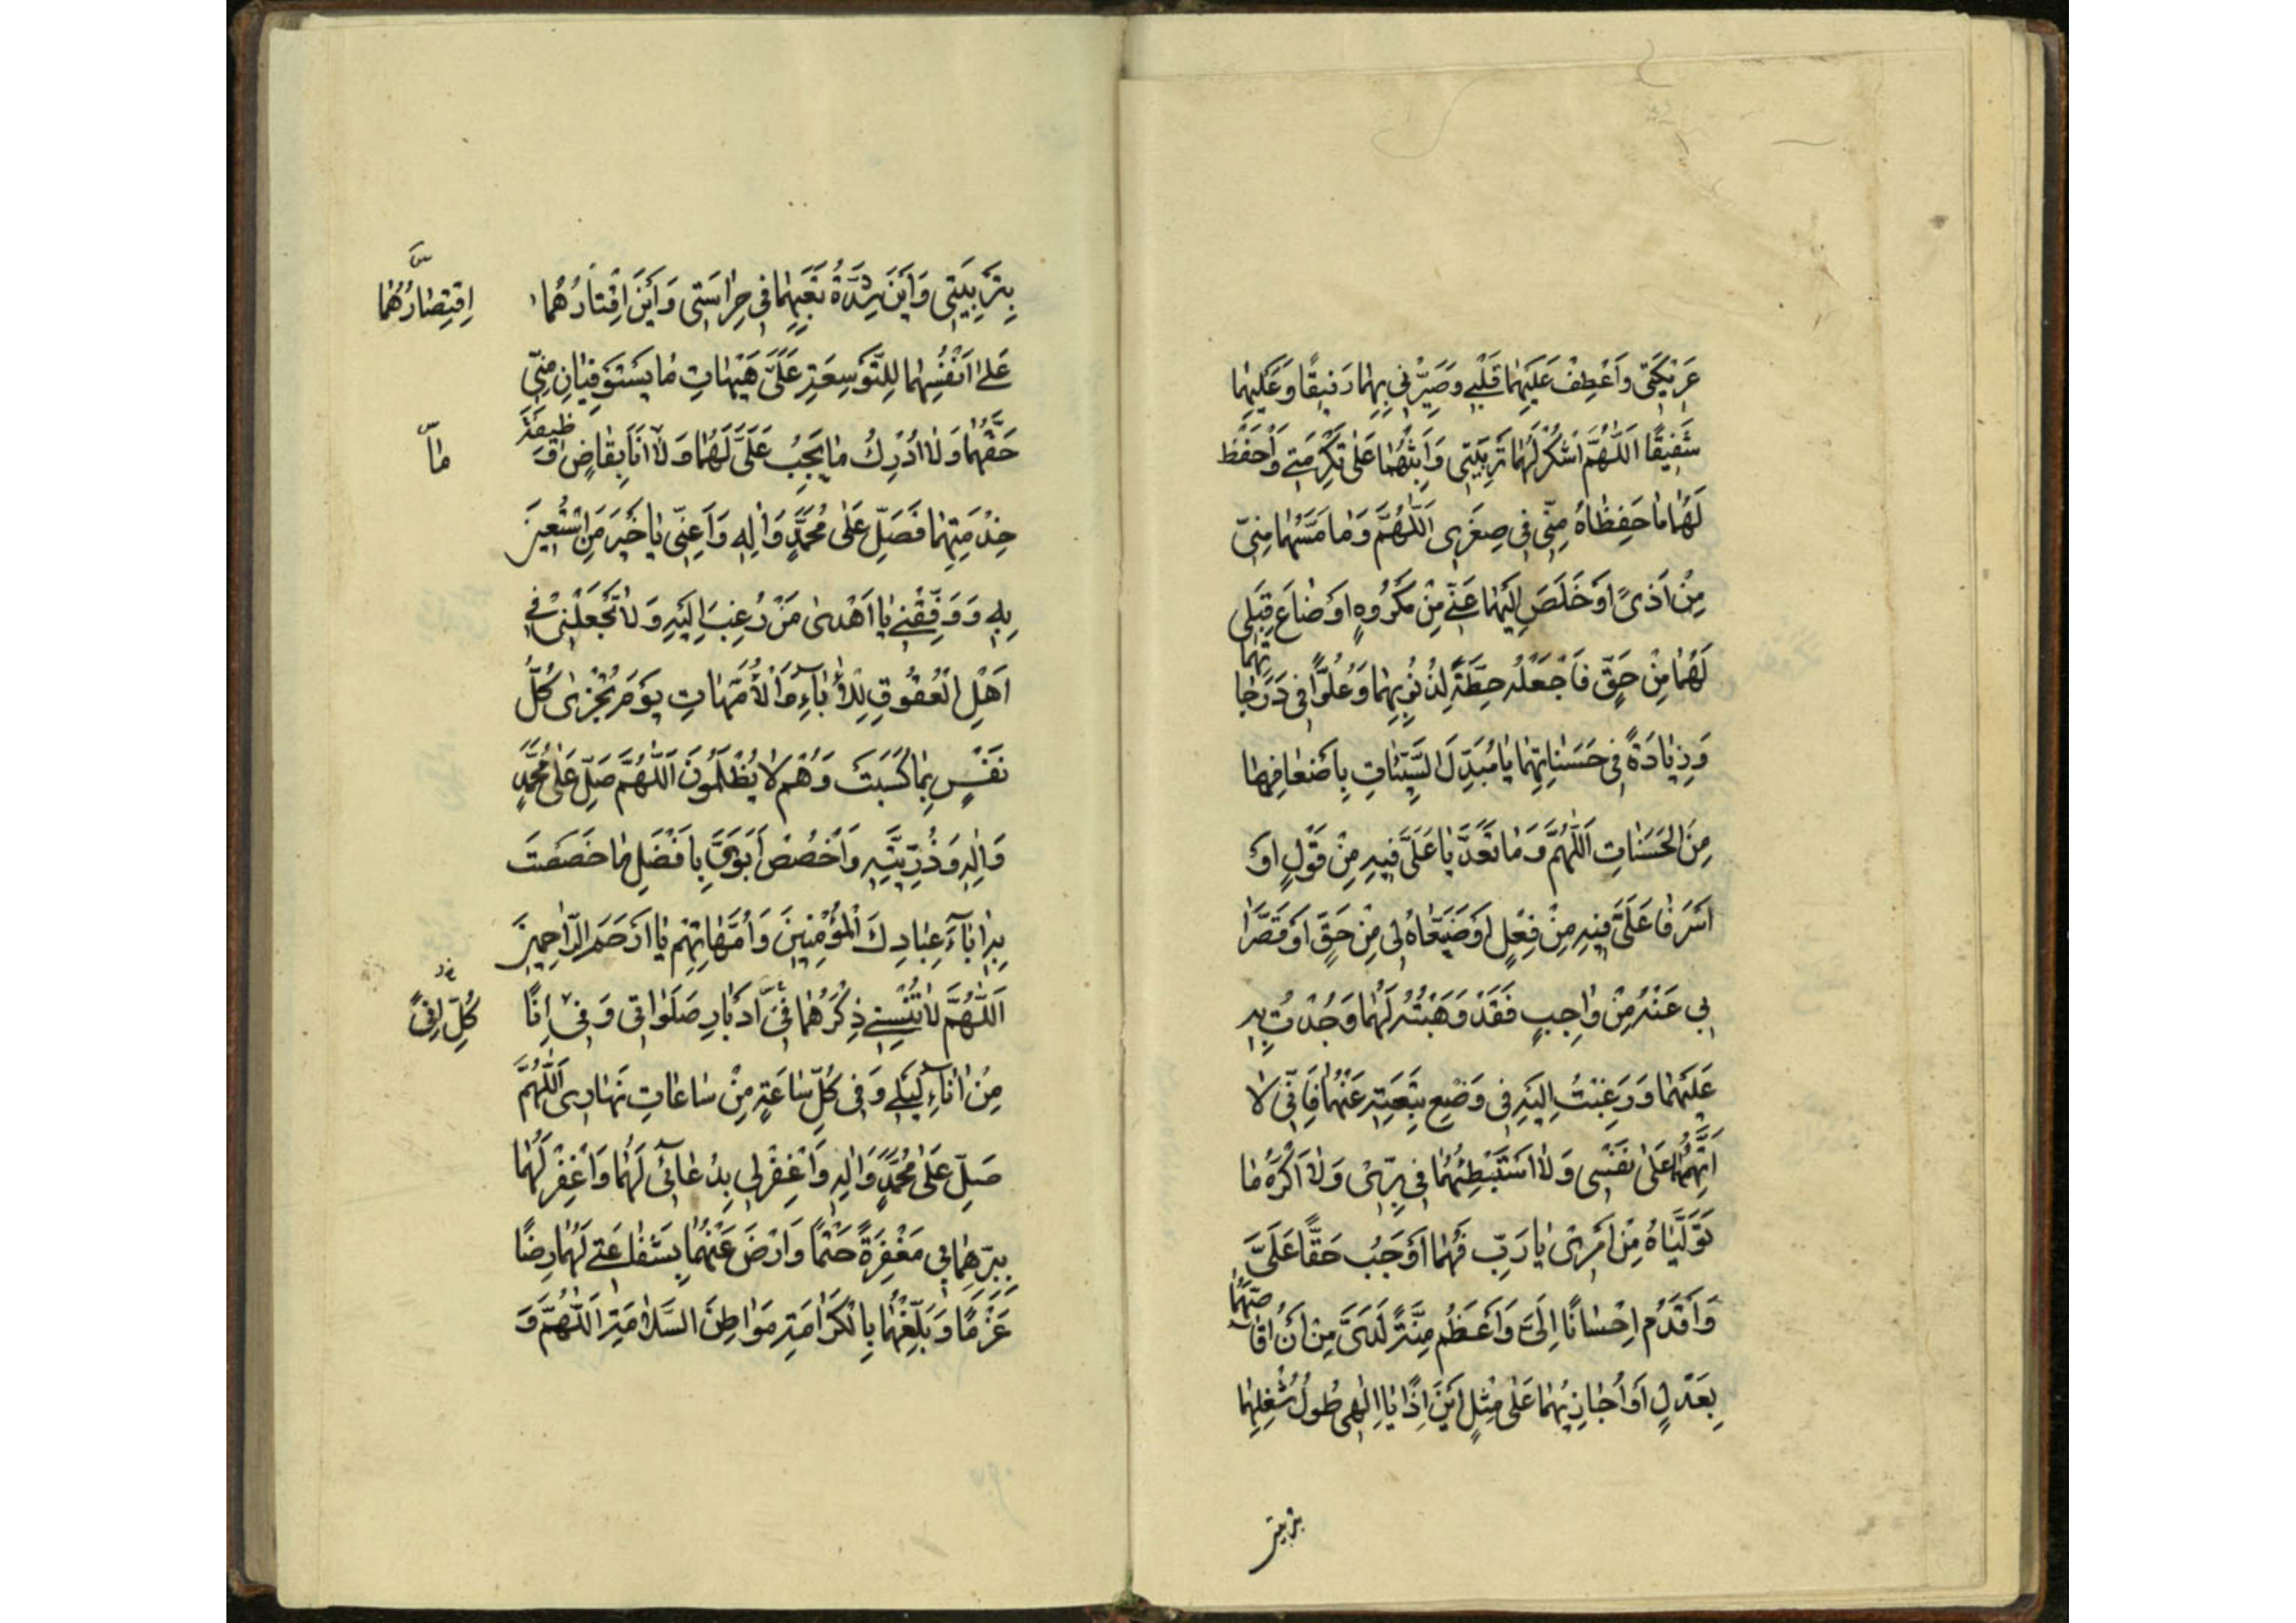 عَرِيكَتِي وَاَعْطِفْ عَلَيْهِمَا قَلْبِي وَصَيِّرْنِي بِهِمَا رَفِيقًا وَعَلَيْهِمَا
شَفِيقًا اَللّٰهُمَّ اشْكُرْ لَهُمَا تَرْبِيَتِي وَاَثِبْهُمَا عَلٰى تَكْرِمَتِي وَاحْفَظْ
لَهُمَا مَا حَفِظَاهُ مِنِّي فِي صِغَرِي اَللّٰهُمَّ وَمَا مَسَّهُمَا مِنِّي
مِنْ اَذًى اَوْ خَلَصَ اِلَيْهِمَا عَنِّي مِنْ مَكْرُوهٍ اَوْ ضَاعَ قِبَلِي
لَهُمَا مِنْ حَقٍّ فَاجْعَلْهُ حِطَّةً لِذُنُوبِهِمَا وَعُلُوًّا فِي دَرَجَاتِهِمَا
وَزِيَادَةً فِي حَسَنَاتِهِمَا يَا مُبَدِّلَ السَّيِّئَاتِ بِاَضْعَافِهَا
مِنَ الْحَسَنَاتِ اَللّٰهُمَّ وَمَا تَعَدَّيَا عَلَيَّ فِيهِ مِنْ قَوْلٍ اَوْ
اَسْرَفَا عَلَيَّ فِيهِ مِنْ فِعْلٍ اَوْ ضَيَّعَاهُ لِي مِنْ حَقٍّ اَوْ قَصَّرَا
بِي عَنْهُ مِنْ وَاجِبٍ فَقَدْ وَهَبْتُهُ لَهُمَا وَجُدْتُ بِهِ
عَلَيْهِمَا وَرَغِبْتُ اِلَيْكَ فِي وَضْعِ تَبِعَتِهِ عَنْهُمَا فَاِنِّي لَا
اَتَّهِمُهُمَا عَلٰى نَفْسِي وَلَا اَسْتَبْطِئُهُمَا فِي بِرِّي وَلَا اَكْرَهُ مَا
تَوَلَّيَاهُ مِنْ اَمْرِي يَا رَبِّ فَهُمَا اَوْجَبُ حَقًّا عَلَيَّ
وَاَقْدَمُ اِحْسَانًا اِلَيَّ وَاَعْظَمُ مِنَّةً لَدَيَّ مِنْ اَنْ اُقَاصَّهُمَا
بِعَدْلٍ اَوْ اُجَازِيَهُمَا عَلٰى مِثْلٍ اَيْنَ اِذًا يَا اِلٰهِي طُولُ شُغْلِهِمَا
بتربيتى
بِتَرْبِيَتِي وَاَيْنَ شِدَّةُ تَعَبِهِمَا فِي حِرَاسَتِي وَاَيْنَ اِقْتَارُهُمَا
اِقْتِصَارُهُمَا
عَلٰى اَنْفُسِهِمَا لِلتَّوْسِعَةِ عَلَيَّ هَيْهَاتَ مَا يَسْتَوْفِيَانِ مِنِّي
حَقَّهُمَا وَلَا اُدْرِكُ مَا يَجِبُ عَلَيَّ لَهُمَا وَلَا اَنَا بِقَاضٍ وَظِيفَةَ
مَا
خِدْمَتِهِمَا فَصَلِّ عَلٰى مُحَمَّدٍ وَاٰلِهِ وَاَعِنِّي يَا خَيْرَ مَنِ اسْتُعِينَ
بِهِ وَوَفِّقْنِي يَا اَهْدٰى مَنْ رُغِبَ اِلَيْهِ وَلَا تَجْعَلْنِي فِي
اَهْلِ الْعُقُوقِ لِلْاٰبَاءِ وَالْاُمَّهَاتِ يَوْمَ تُجْزٰى كُلُّ
نَفْسٍ بِمَا كَسَبَتْ وَهُمْ لَا يُظْلَمُونَ اَللّٰهُمَّ صَلِّ عَلٰى مُحَمَّدٍ
وَاٰلِهِ وَذُرِّيَّتِهِ وَاخْصُصْ اَبَوَيَّ بِاَفْضَلِ مَا خَصَصْتَ
بِهِ اٰبَاءَ عِبَادِكَ الْمُؤْمِنِينَ وَاُمَّهَاتِهِمْ يَا اَرْحَمَ الرَّاحِمِينَ
اَللّٰهُمَّ لَا تُنْسِنِي ذِكْرَهُمَا فِي اَدْبَارِ صَلَوَاتِي وَفِي اِنًا
كُلِّ اِنًى
مِنْ اٰنَاءِ لَيْلِي وَفِي كُلِّ سَاعَةٍ مِنْ سَاعَاتِ نَهَارِي اَللّٰهُمَّ
صَلِّ عَلٰى مُحَمَّدٍ وَاٰلِهِ وَاغْفِرْ لِي بِدُعَائِي لَهُمَا وَاغْفِرْ لَهُمَا
بِبِرِّهِمَا بِي مَغْفِرَةً حَتْمًا وَارْضَ عَنْهُمَا بِشَفَاعَتِي لَهُمَا رِضًا
عَزْمًا وَبَلِّغْهُمَا بِالْكَرَامَةِ مَوَاطِنَ السَّلَامَةِ اَللّٰهُمَّ وَ